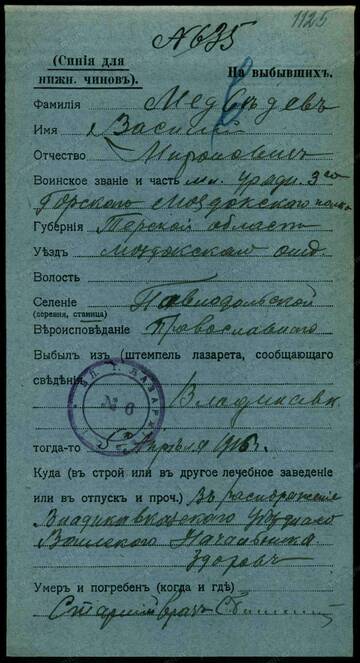 1125
№ 635
(Синія для
нижн. чиновъ).
На выбывшихъ.
Фамилія Медвѣдевъ
Имя Василій
Отчество Мироновичъ
Воинское званіе и часть мл. уряд. 3го
Горского Моздокского полка
Губернія Терской область
Уѣздъ Моздокскаго отд.
Волость
Селеніе Павлодольской
(деревня, станица)
Вѣроисповѣданіе Православнаго
Выбылъ изъ (штемпель лазарета, сообщающаго
свѣдѣнія)
Владикавк.
ЛАЗАРЕТ
№ 6
тогда-то 5 Апрѣля 1916 г.
Куда (въ строй или въ другое лечебное заведеніе
или въ отпускъ и проч.) Въ распоряженіе
Владикавказского Уѣздного
Воинского Начальника
Здоровъ
Умеръ и погребенъ (когда и гдѣ)
Старшій врачъ